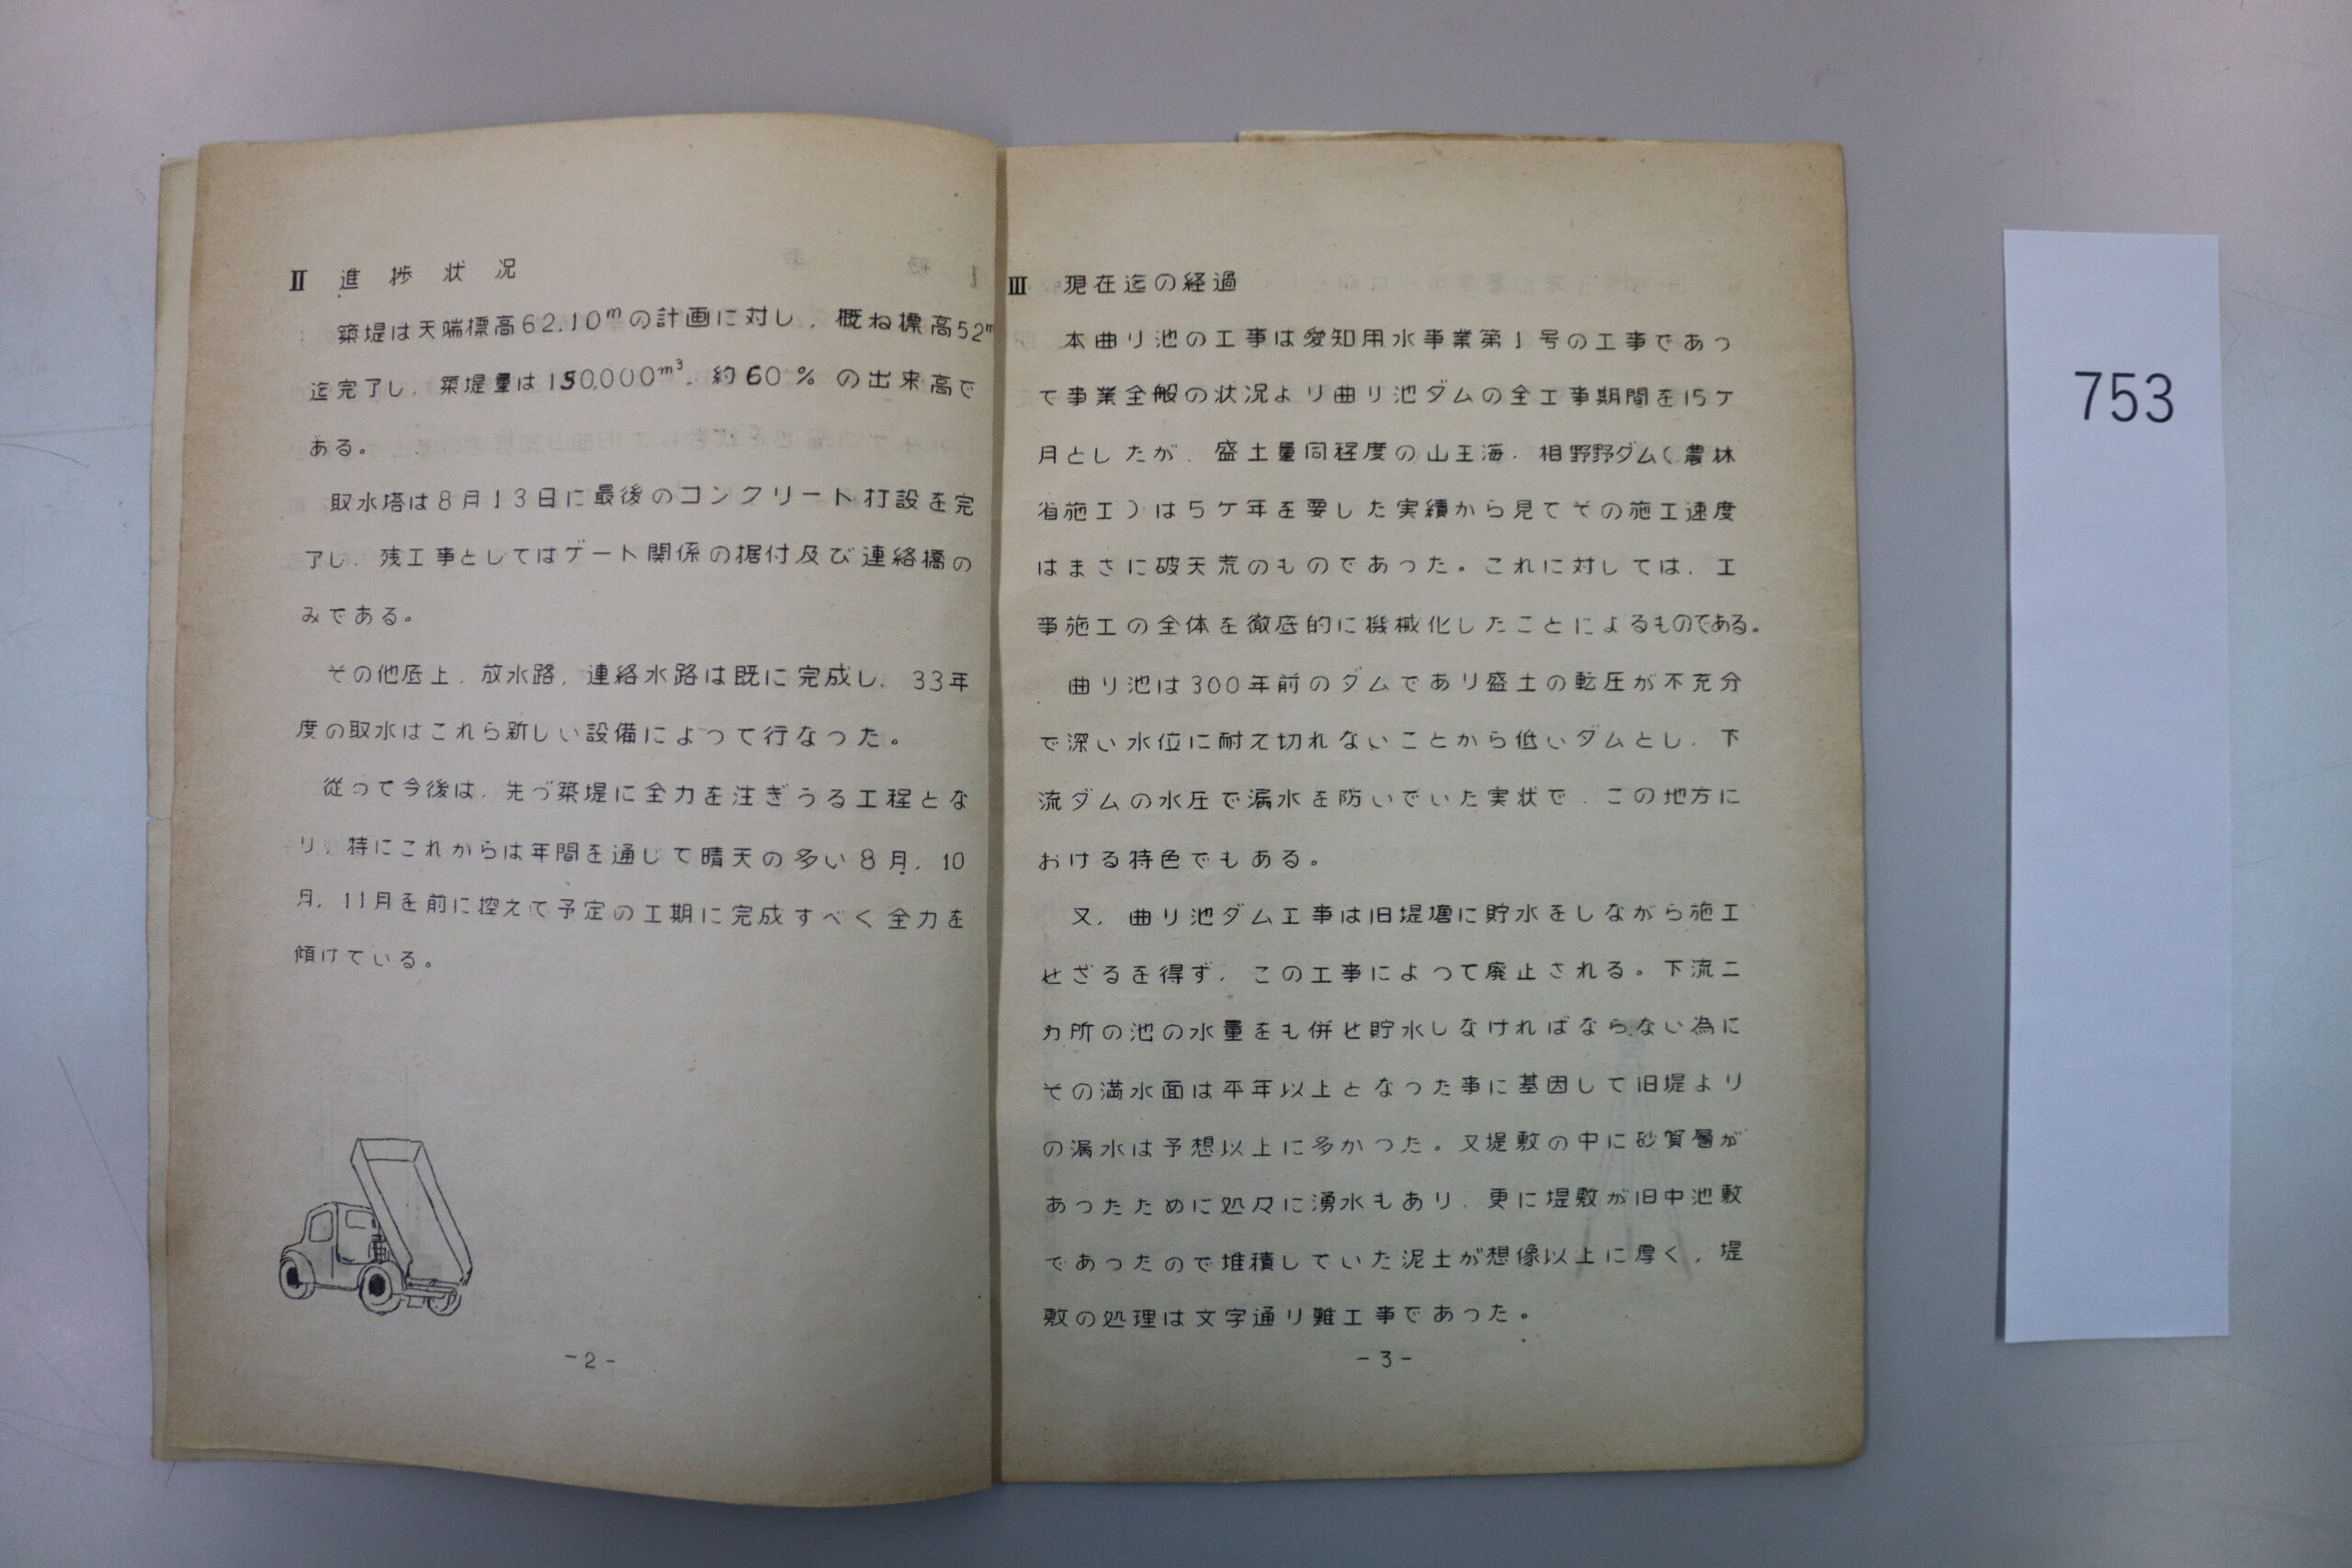 Ⅱ 進捗状況
築堤は天端標高62.10mの計画に対し，概ね標高52m
迄完了し，築堤量は150,000m³，約60％の出来高で
ある。
取水塔は8月13日に最後のコンクリート打設を完
了し，残工事としてはゲート関係の据付及び連絡橋の
みである。
その他底上，放水路，連絡水路は既に完成し，33年
度の取水はこれら新しい設備によつて行なつた。
従つて今後は，先づ築堤に全力を注ぎうる工程とな
り，特にこれからは年間を通じて晴天の多い8月，10
月，11月を前に控えて予定の工期に完成すべく全力を
傾けている。
-2-
Ⅲ 現在迄の経過
本曲り池の工事は愛知用水事業第1号の工事であつ
て事業全般の状況より曲り池ダムの全工事期間を15ケ
月としたが，盛土量同程度の山王海，相野野ダム（農林
省施工）は5ケ年を要した実績から見てその施工速度
はまさに破天荒のものであつた。これに対しては，工
事施工の全体を徹底的に機械化したことによるものである。
曲り池は300年前のダムであり盛土の転圧が不充分
で深い水位に耐え切れないことから低いダムとし，下
流ダムの水圧で漏水を防いでいた実状で，この地方に
おける特色でもある。
又，曲り池ダム工事は旧堤塘に貯水をしながら施工
せざるを得ず，この工事によつて廃止される。下流二
カ所の池の水量をも併せ貯水しなければならない為に
その満水面は平年以上となつた事に基因して旧堤より
の漏水は予想以上に多かつた。又堤敷の中に砂質層が
あつたために処々に湧水もあり，更に堤敷が旧中池敷
であつたので堆積していた泥土が想像以上に厚く，堤
敷の処理は文字通り難工事であつた。
-3-
753